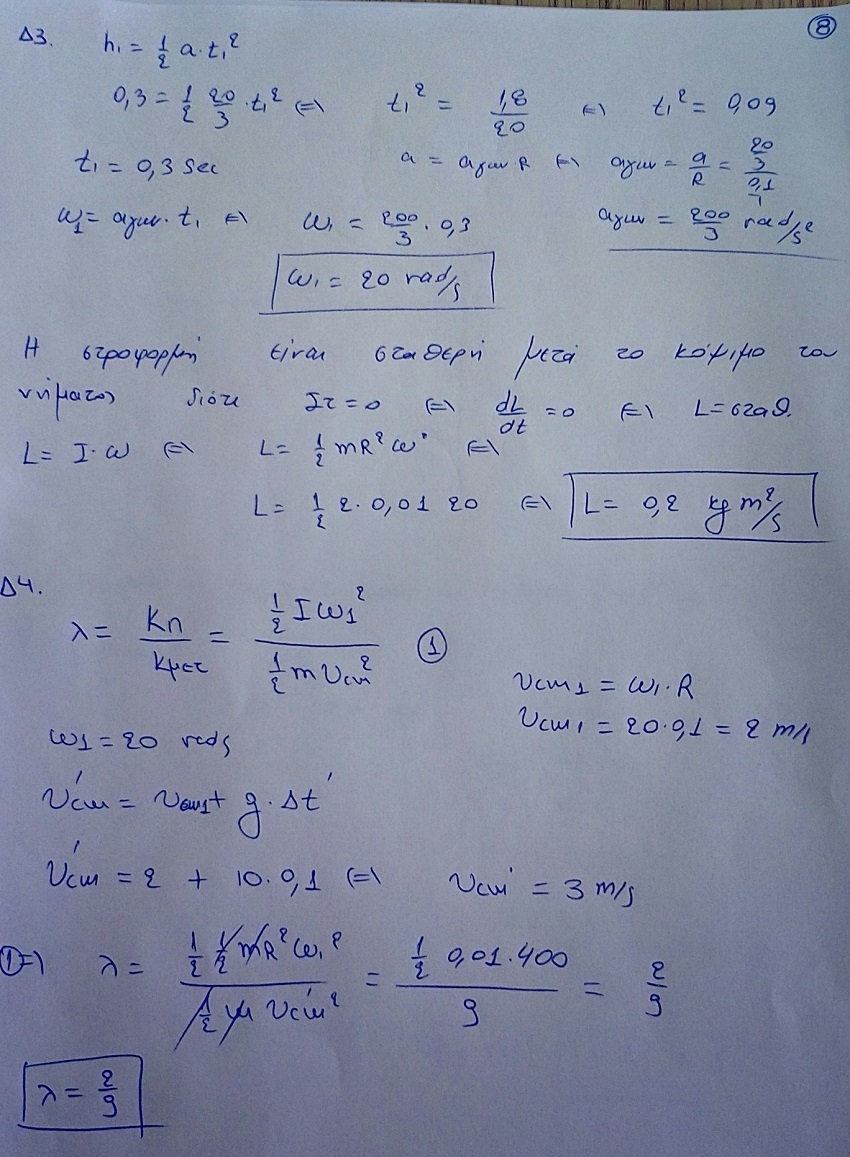 ⑧
Δ3. h₁ = 1/2 a·t₁²
0,3 = 1/2 20/3 · t₁² ⇔ t₁² = 1,8/20 ⇔ t₁² = 0,09
t₁ = 0,3 sec a = αγων R ⇔ αγων = a/R = 20/3 / 0,1/1
ω₁ = αγων · t₁ ⇔ ω₁ = 200/3 · 0,3 αγων = 200/3 rad/s²
ω₁ = 20 rad/s
Η στροφορμή είναι σταθερή μετά το κόψιμο του
νήματος διότι Στ = 0 ⇔ dL/dt = 0 ⇔ L = σταθ.
L = I·ω ⇔ L = 1/2 mR²ω ⇔
L = 1/2 2·0,01 20 ⇔ L = 0,2 kg m²/s
Δ4.
λ = Kπ/Kμετ = 1/2 Iω₁² / 1/2 m υcm² ①
υcm₁ = ω₁·R
ω₁ = 20 rad/s υcm₁ = 20·0,1 = 2 m/s
υ'cm = υcm₁ + g·Δt'
υ'cm = 2 + 10·0,1 ⇔ υcm' = 3 m/s
①⇒ λ = 1/2 1/2 mR²ω₁² / 1/2 m υcm'² = 1/2 0,01·400 / 9 = 2/9
λ = 2/9